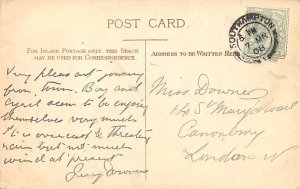 POST CARD.
FOR INLAND POSTAGE ONLY, THIS SPACE
MAY BE USED FOR CORRESPONDENCE.
ADDRESS TO BE WRITTEN HERE.
SOUTHAMPTON
Very pleasant journey
from town. Boy and
Cyril seem to be enjoying
themselves very much
It is overcast & threatg
rain but not much
wind at present
Downes
Miss Downes
St Mary's Road
Canonbury
London N